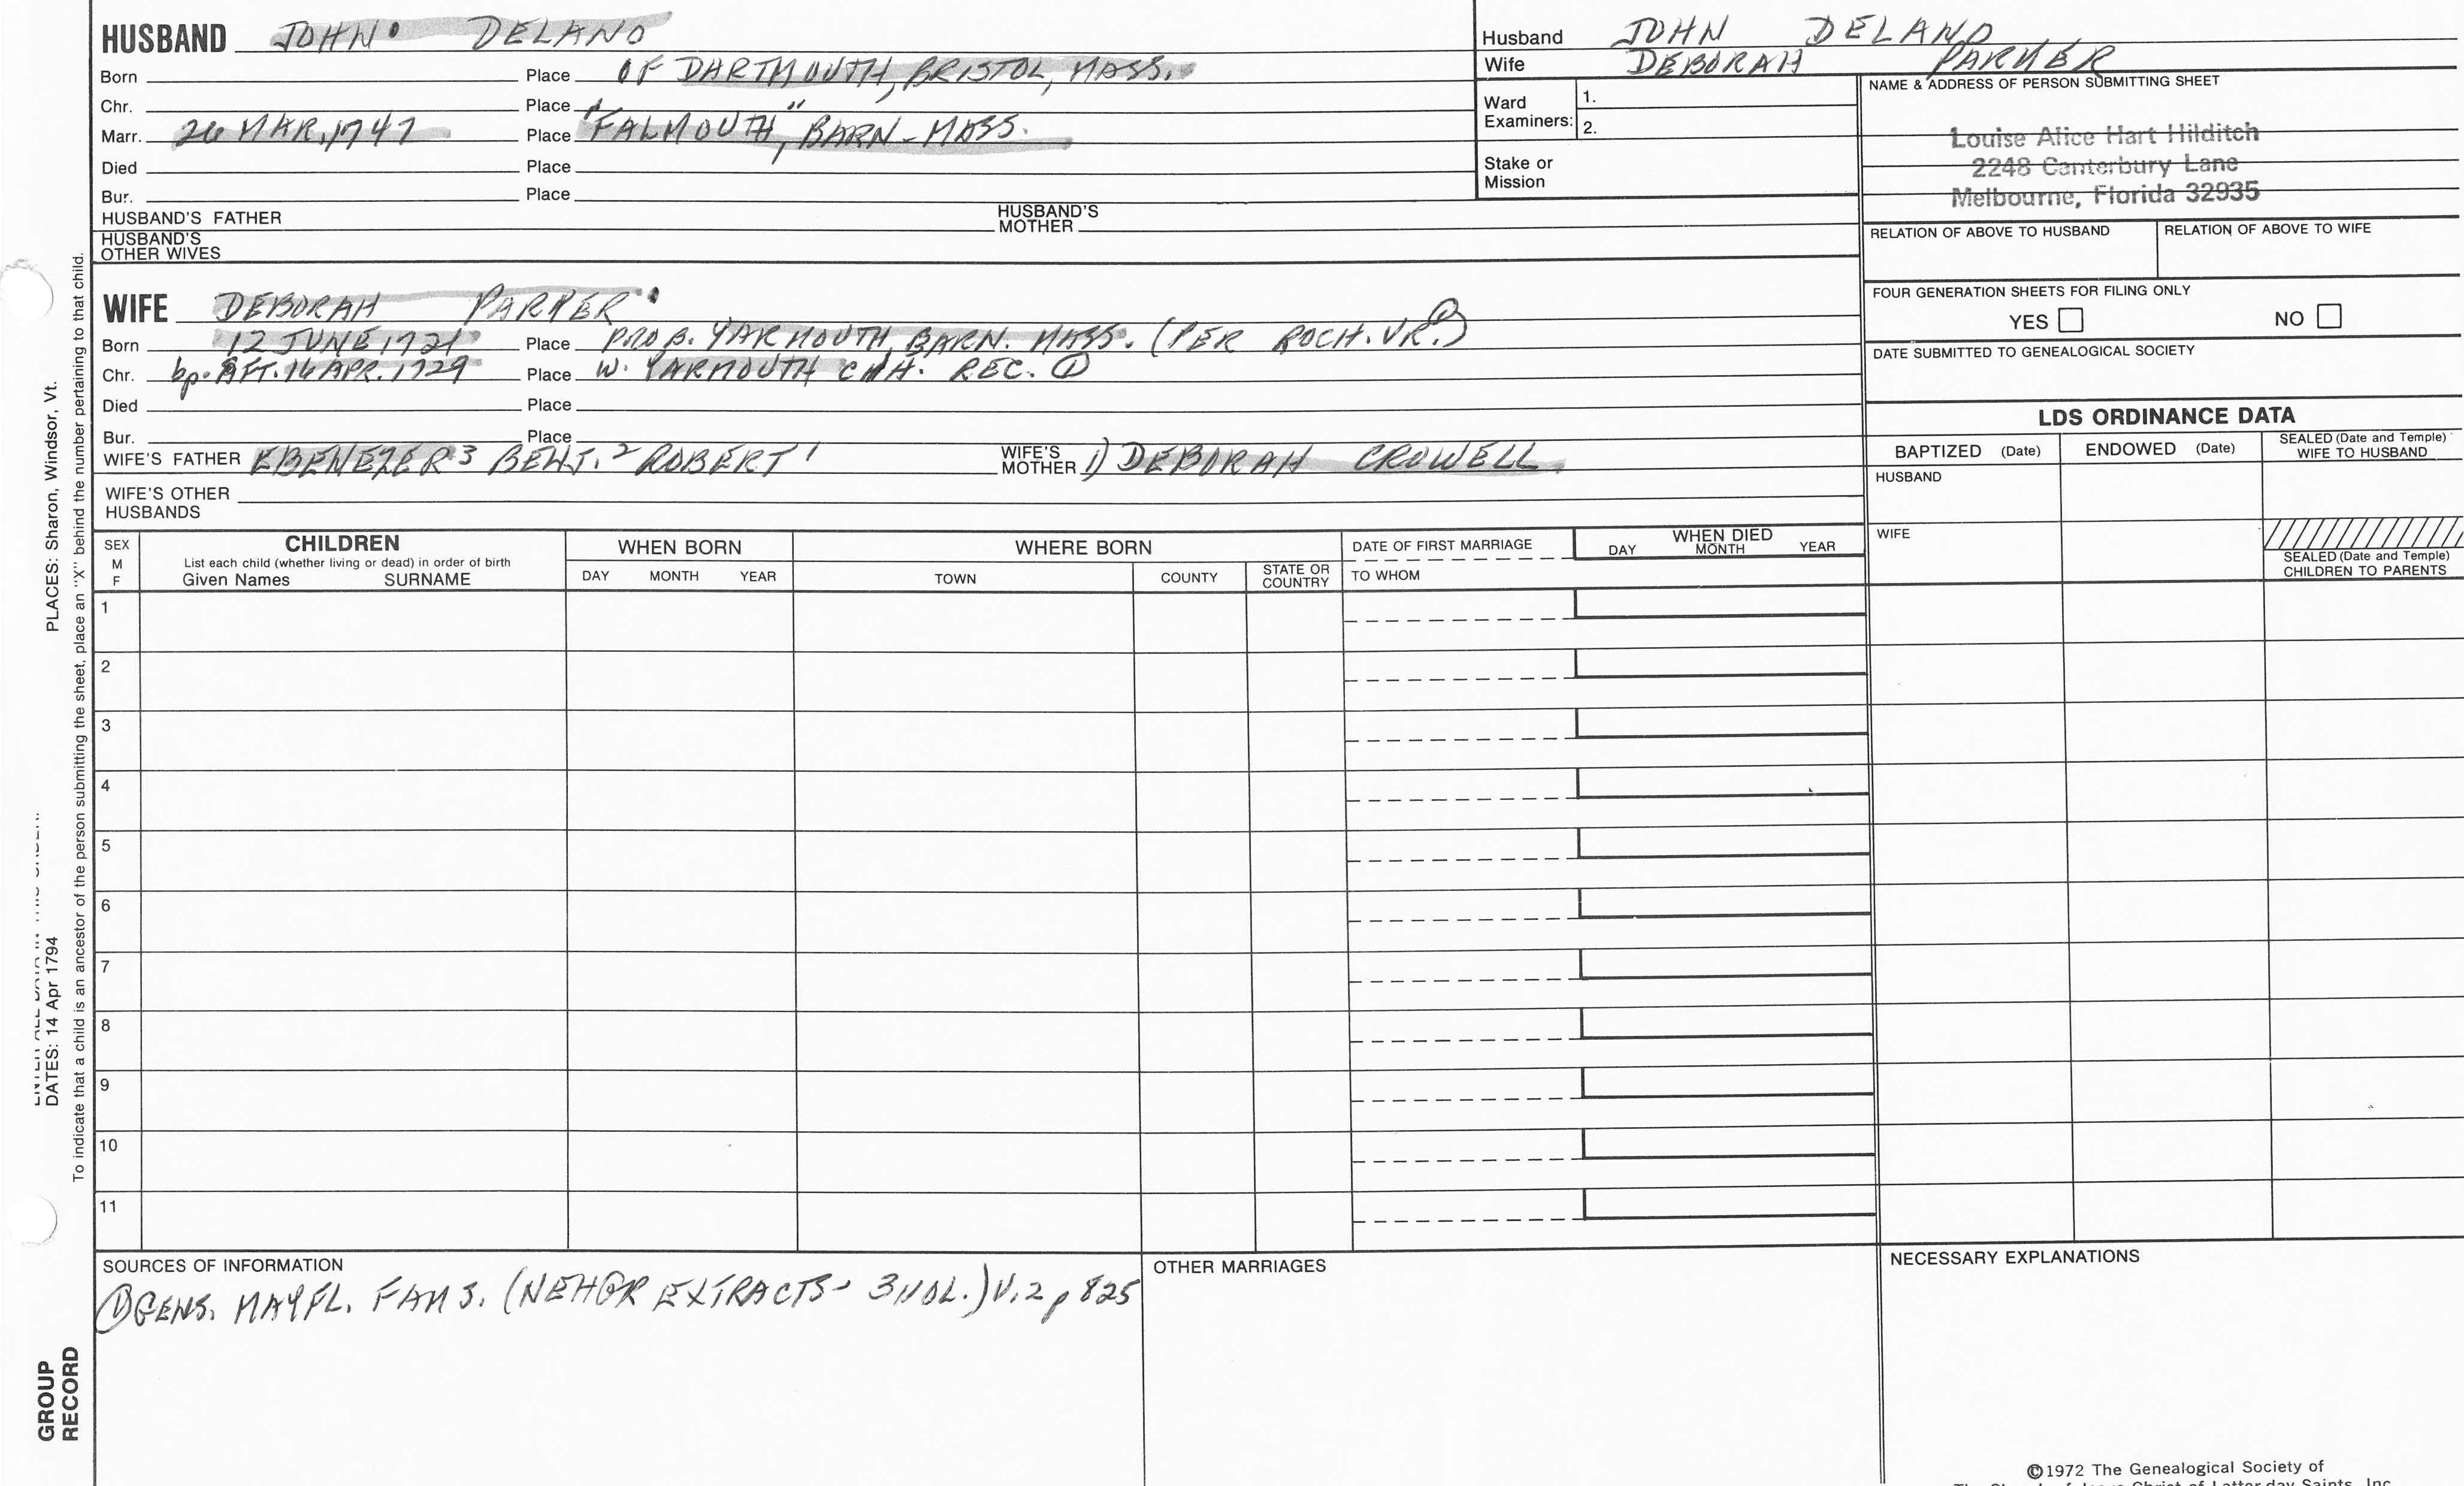 HUSBAND JOHN DELANO
Born Place OF DARTMOUTH, BRISTOL, MASS.
Chr. Place " "
Marr. 26 MAR, 1747 Place FALMOUTH, BARN-MASS.
Died Place
Bur. Place
HUSBAND'S FATHER HUSBAND'S MOTHER
HUSBAND'S OTHER WIVES
Husband JOHN DELANO
Wife DEBORAH PARKER
Ward Examiners: 1.
2.
Stake or Mission
NAME & ADDRESS OF PERSON SUBMITTING SHEET
Louise Alice Hart Hilditch
2248 Canterbury Lane
Melbourne, Florida 32935
RELATION OF ABOVE TO HUSBAND RELATION OF ABOVE TO WIFE
FOUR GENERATION SHEETS FOR FILING ONLY
YES NO
DATE SUBMITTED TO GENEALOGICAL SOCIETY
WIFE DEBORAH PARKER
Born 12 JUNE 1721 Place PROB. YARMOUTH, BARN. MASS. (PER ROCH. VR.)
Chr. bp. AFT. 16 APR. 1729 Place W. YARMOUTH CHH. REC. ①
Died Place
Bur. Place
WIFE'S FATHER EBENEZER 3 BENJ. 2 ROBERT 1 WIFE'S MOTHER 1) DEBORAH CROWELL
WIFE'S OTHER HUSBANDS
LDS ORDINANCE DATA
BAPTIZED (Date) ENDOWED (Date) SEALED (Date and Temple) WIFE TO HUSBAND
HUSBAND
WIFE
SEALED (Date and Temple) CHILDREN TO PARENTS
SEX M F
CHILDREN
List each child (whether living or dead) in order of birth
Given Names SURNAME
WHEN BORN
DAY MONTH YEAR
WHERE BORN
TOWN COUNTY STATE OR COUNTRY
DATE OF FIRST MARRIAGE
TO WHOM
WHEN DIED
DAY MONTH YEAR
1
2
3
4
5
6
7
8
9
10
11
SOURCES OF INFORMATION
① GENS. MAYFL. FAMS. (NEHGR EXTRACTS - 3 VOL.) V. 2 p 825
OTHER MARRIAGES
NECESSARY EXPLANATIONS
©1972 The Genealogical Society of
The Church of Jesus Christ of Latter-day Saints, Inc.
PLACES: Sharon, Windsor, Vt.
DATES: 14 Apr 1794
To indicate that a child is an ancestor of the person submitting the sheet, place an "X" behind the number pertaining to that child.
GROUP
RECORD